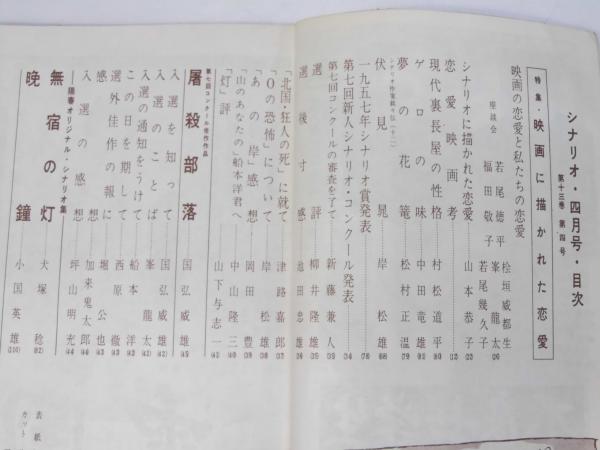 シナリオ・四月号・目次
第十三巻 第四号
特集・映画に描かれた恋愛
映画の恋愛と私たちの恋愛
座談会
若尾徳平 桧垣威都生 峯龍太
福田敬子 若尾幾久子
シナリオに描かれた恋愛 山本恭子
恋愛映画考
現代裏長屋の性格 村松道平
ゲロの味 中田竜雄
夢の花籠 松村正温
シナリオ作家銘々伝(十二)
伏見晁 岸松雄
一九五七年シナリオ賞発表
第七回新人シナリオ・コンクール発表
第七回コンクールの審査を了て 新藤兼人
選評 柳井隆雄
選後寸感 池田忠雄
「北国・狂人の死」に就て 津路嘉郎
「Oの恐怖」について 岸松雄
「あの岸」感想 岡田豊
「山のあなたの」船本洋君へ 中山隆三
「灯」評 山下与志一
第七回コンクール佳作作品
屠殺部落 国弘威雄
入選を知って 国弘威雄
入選のことば 峯龍太
入選の通知をうけて 船本洋
この日を期して 西原徹
選外佳作の報に 堀公也
感想 加来鬼太郎
入選の感想 坪山明充
陽春オリジナル・シナリオ集
無宿の灯 犬塚稔
晩鐘 小国英雄
表紙
カット